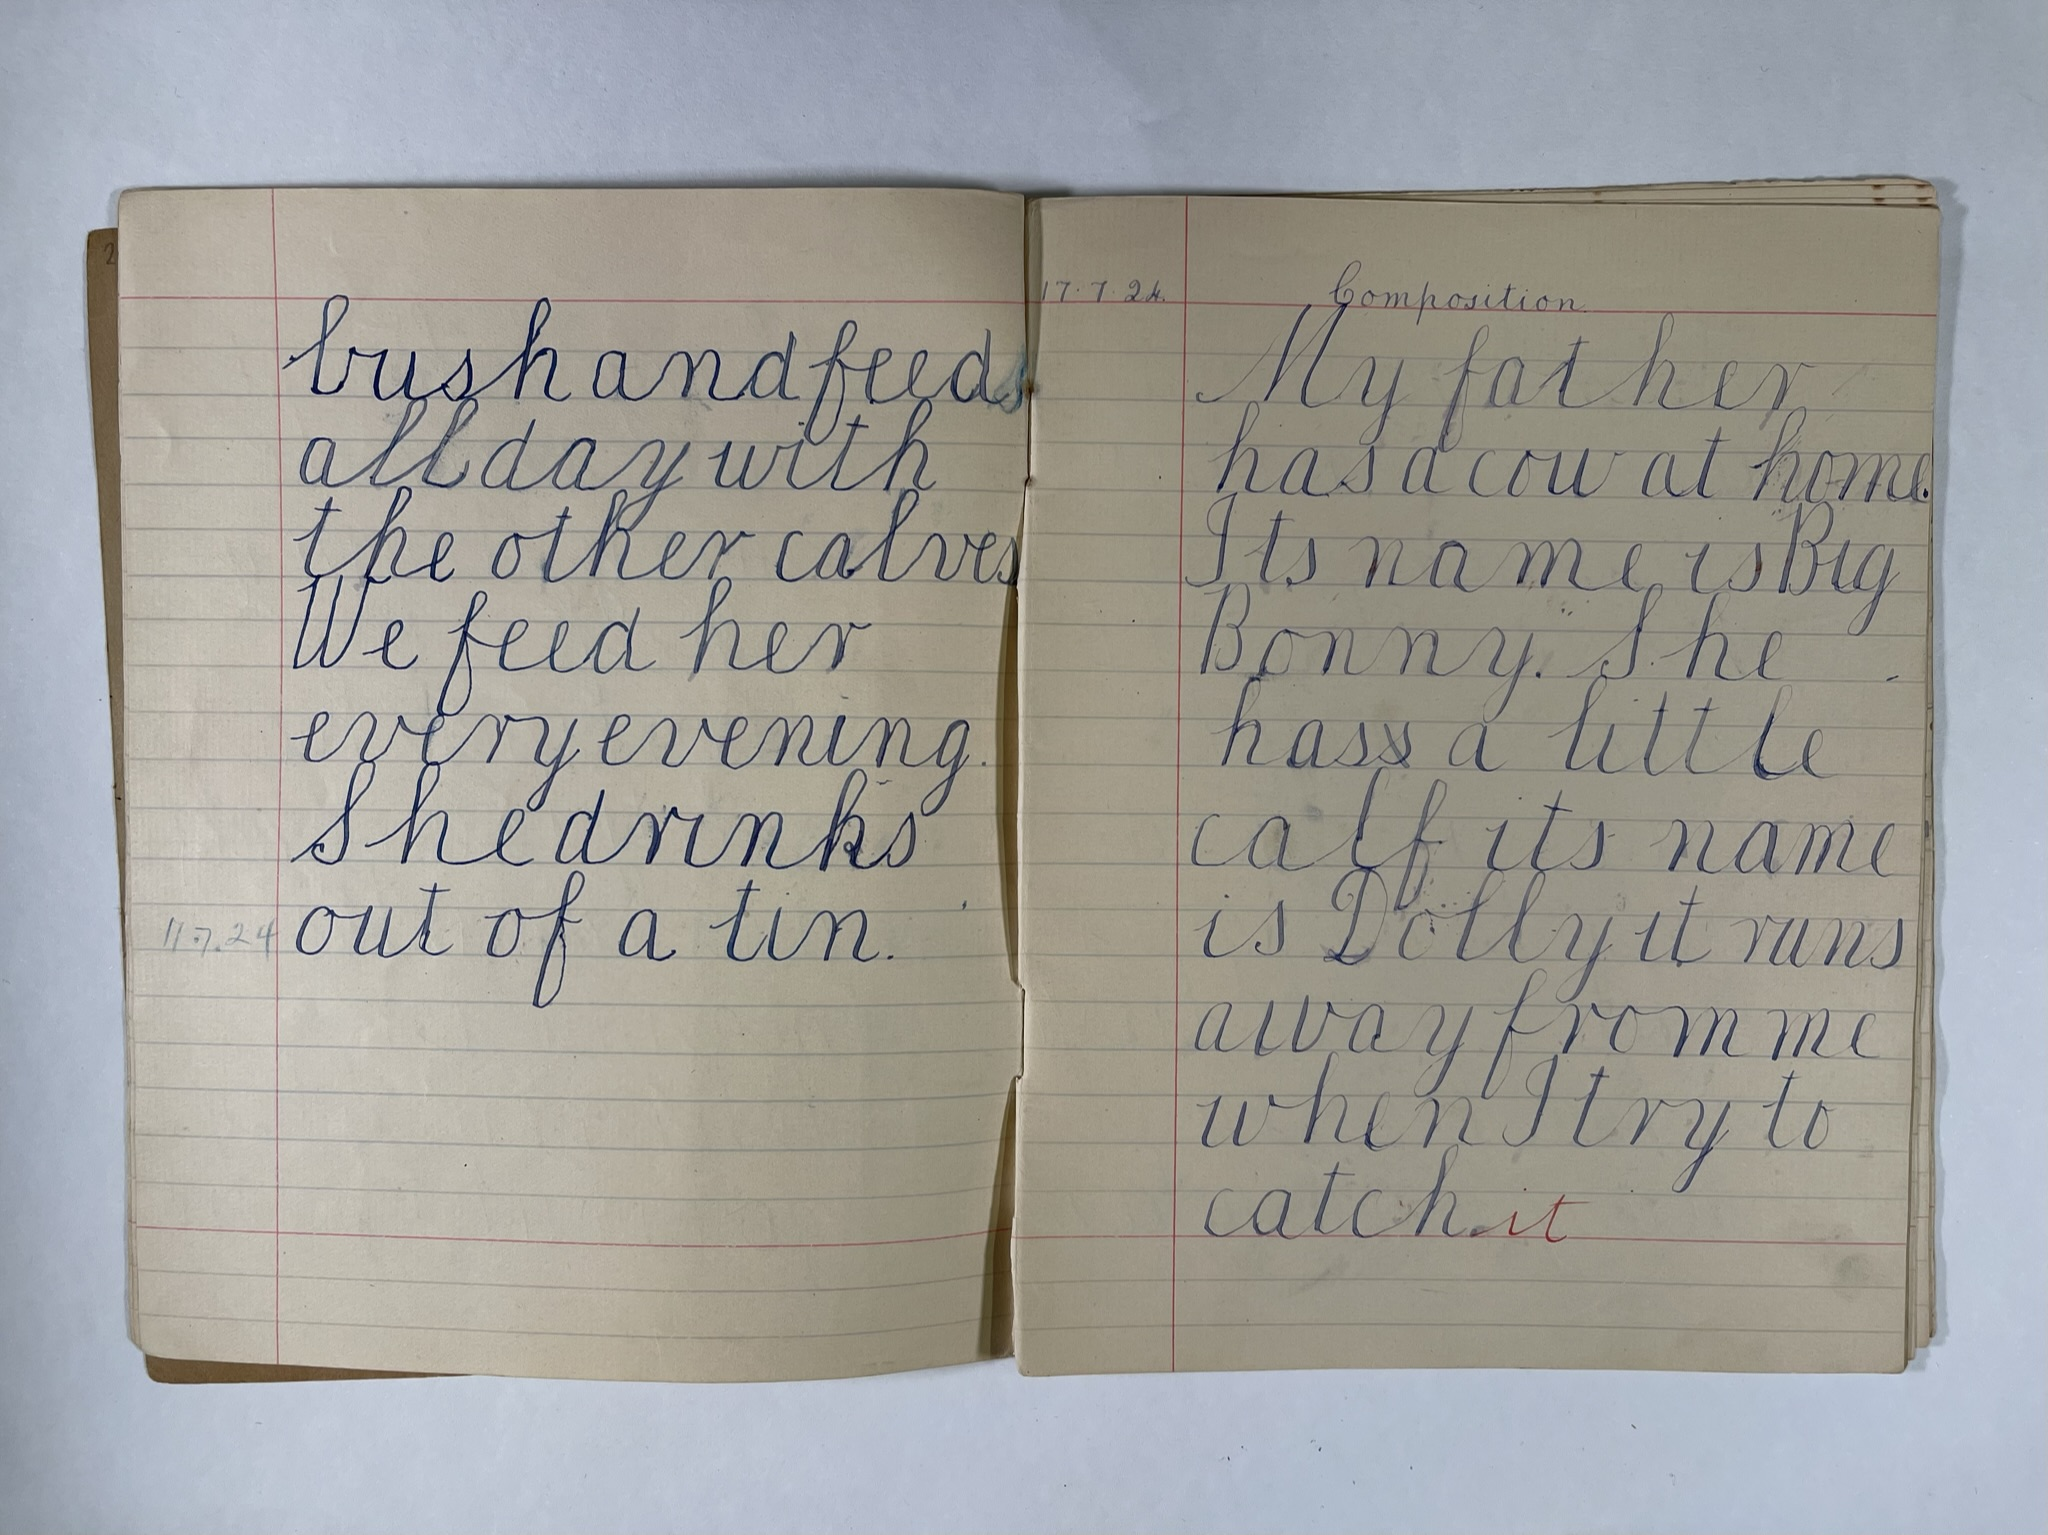 2
bush and feeds
all day with
the other calves
We feed her
every evening.
She drinks
11.7.24 out of a tin.
17.7.24. Composition.
My father
has a cow at home.
Its name is Big
Bonny. She
hass a little
calf its name
is Dolly it runs
away from me
when I try to
catch. it